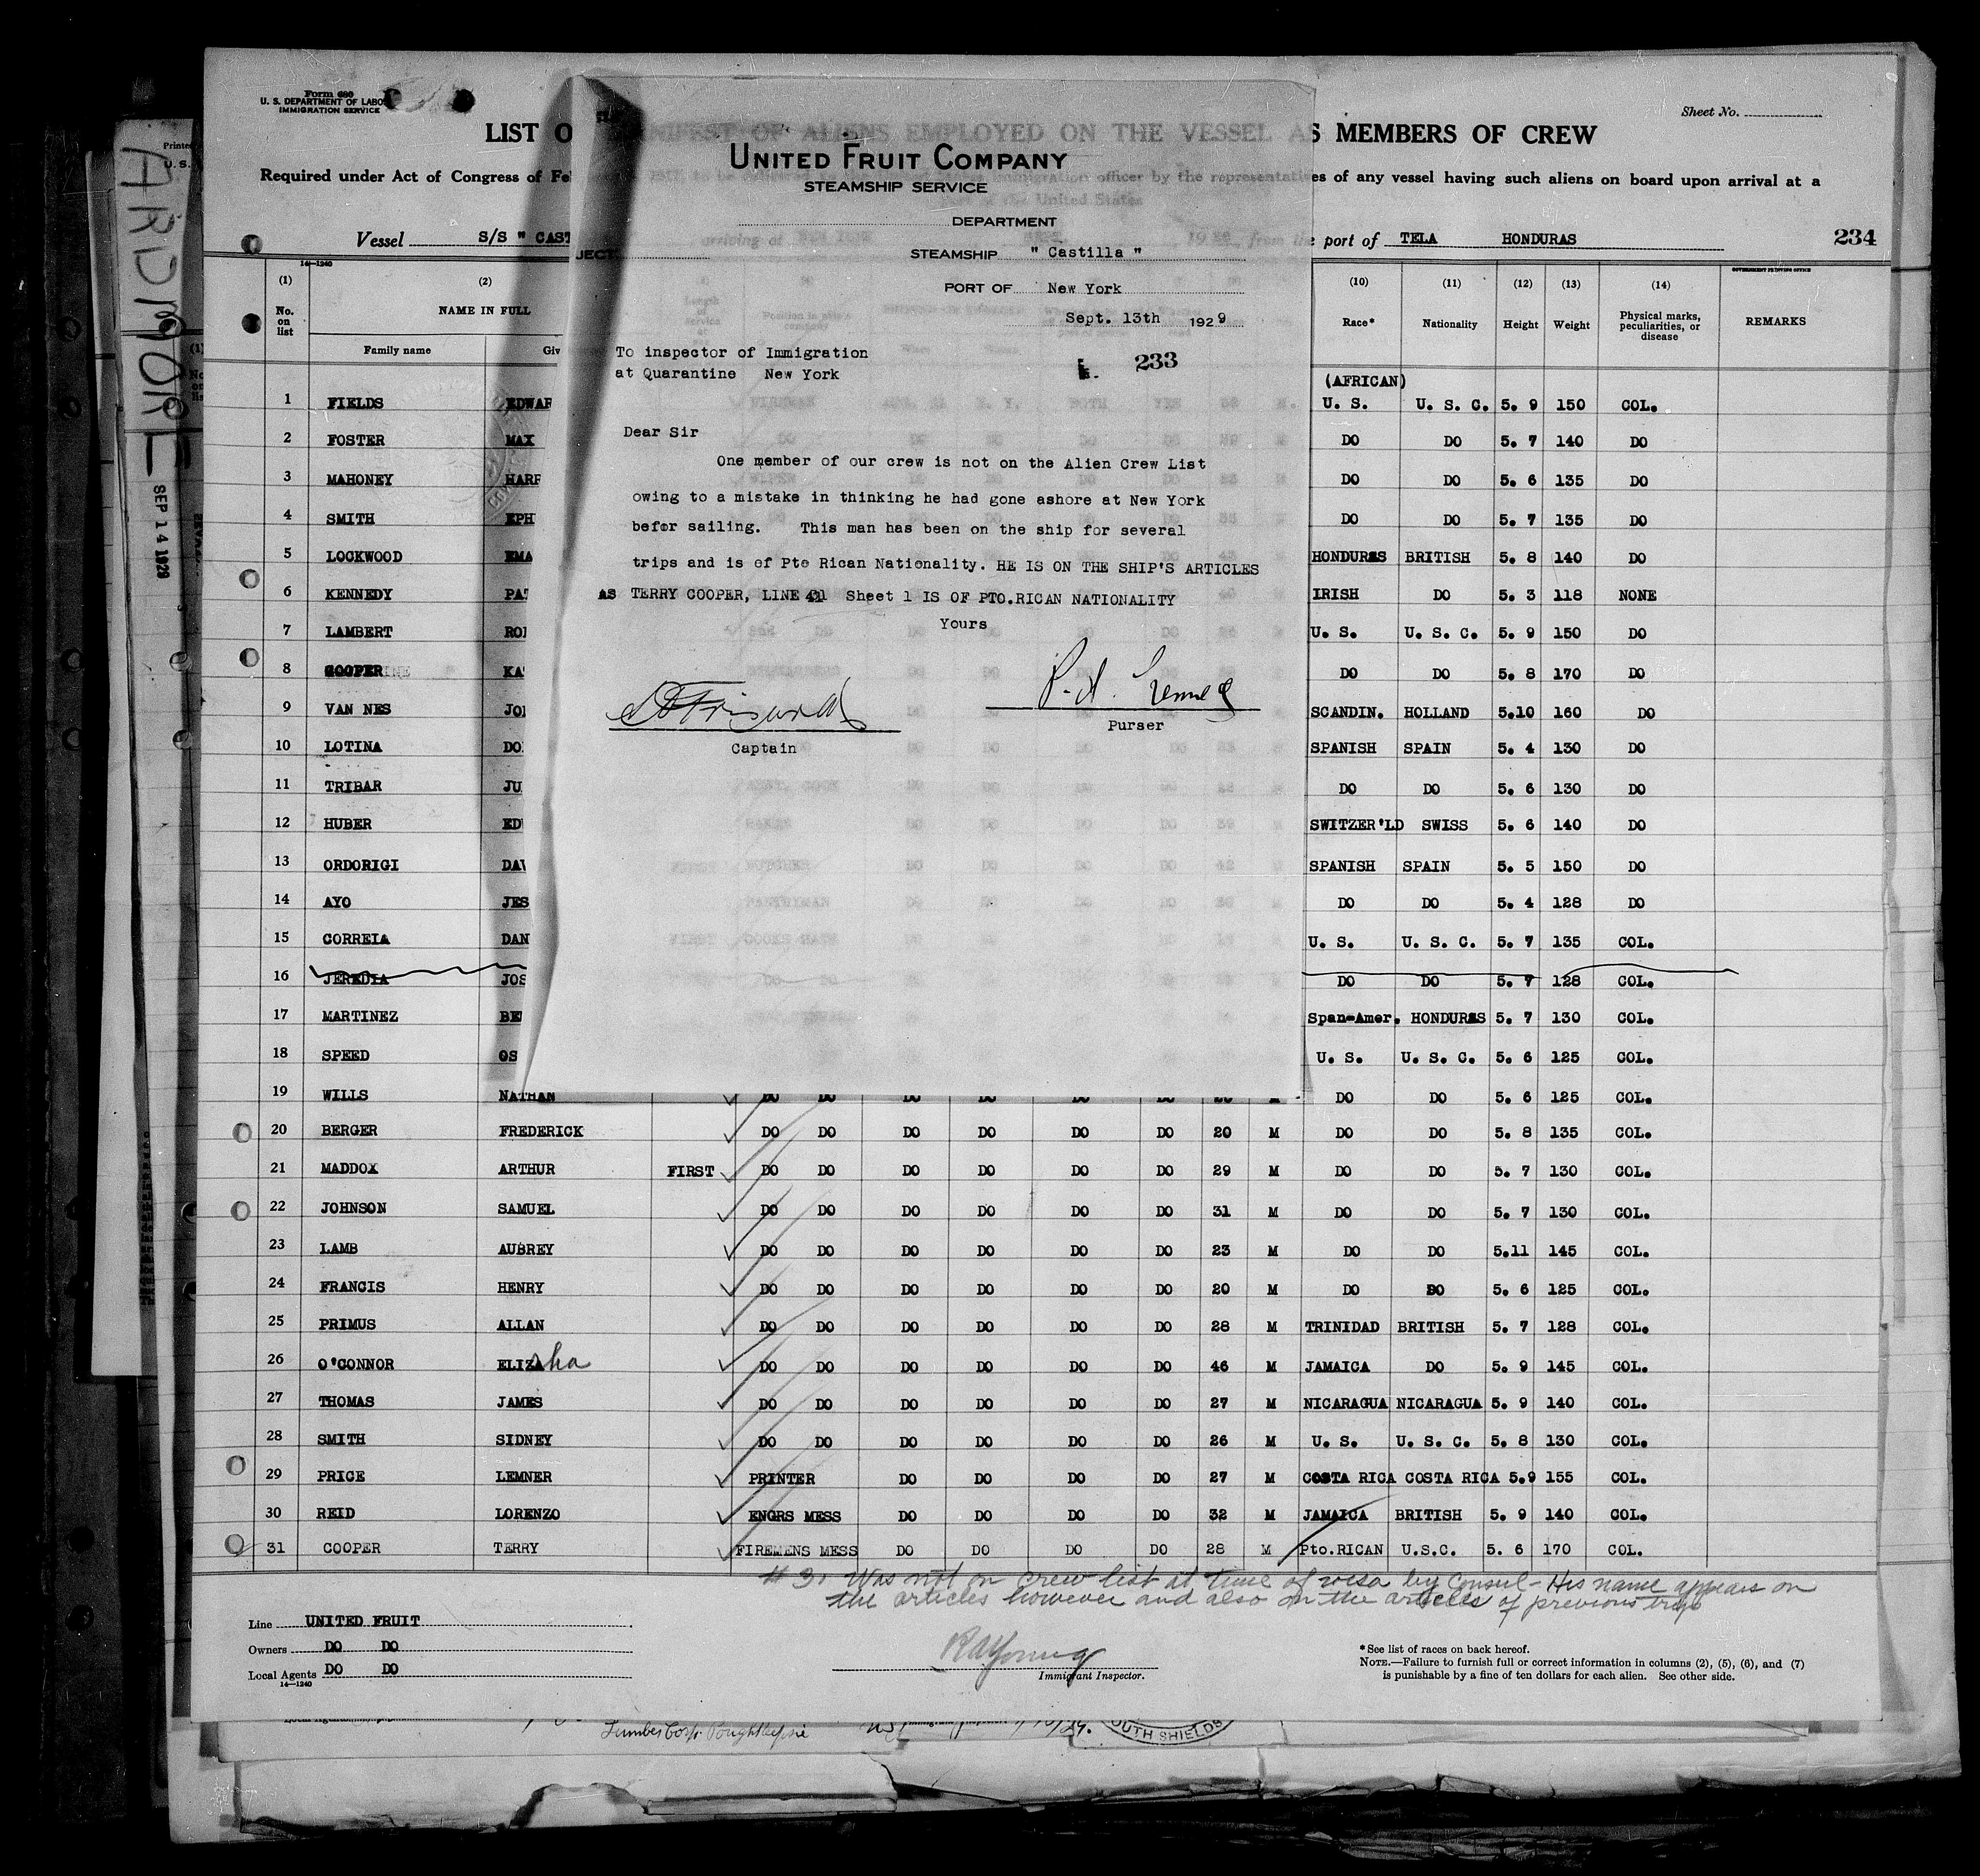 Form 680
U. S. DEPARTMENT OF LABO
IMMIGRATION SERVICE
Sheet No.
LIST O MANIFEST OF ALIENS EMPLOYED ON THE VESSEL AS MEMBERS OF CREW
Required under Act of Congress of Fe immigration officer by the representatives of any vessel having such aliens on board upon arrival at a
port of the United States
Vessel S/S " CAST arriving at 19 from the port of TELA HONDURAS
234
14—1240
GOVERNMENT PRINTING OFFICE
(1) (2) (10) (11) (12) (13) (14)
No. on list NAME IN FULL Race* Nationality Height Weight Physical marks, peculiarities, or disease REMARKS
Family name Giv
(AFRICAN)
1 FIELDS EDWAR U. S. U. S. C. 5. 9 150 COL.
2 FOSTER MAX DO DO 5. 7 140 DO
3 MAHONEY HARR DO DO 5. 6 135 DO
4 SMITH EPH DO DO 5. 7 135 DO
5 LOCKWOOD EMA HONDURAS BRITISH 5. 8 140 DO
6 KENNEDY PAT IRISH DO 5. 3 118 NONE
7 LAMBERT ROB U. S. U. S. C. 5. 9 150 DO
8 COOPER KA DO DO 5. 8 170 DO
9 VAN NES JO SCANDIN. HOLLAND 5.10 160 DO
10 LOTINA DO SPANISH SPAIN 5. 4 130 DO
11 TRIBAR JU DO DO 5. 6 130 DO
12 HUBER ED SWITZER'LD SWISS 5. 6 140 DO
13 ORDORIGI DAV SPANISH SPAIN 5. 5 150 DO
14 AYO JES DO DO 5. 4 128 DO
15 CORREIA DAN U. S. U. S. C. 5. 7 135 COL.
16 JEREDIA JOS DO DO 5. 7 128 COL.
17 MARTINEZ BE Span-Amer. HONDURAS 5. 7 130 COL.
18 SPEED OS U. S. U. S. C. 5. 6 125 COL.
19 WILLS NATHAN DO DO DO DO DO DO M DO DO 5. 6 125 COL.
20 BERGER FREDERICK DO DO DO DO DO DO 20 M DO DO 5. 8 135 COL.
21 MADDOX ARTHUR FIRST DO DO DO DO DO DO 29 M DO DO 5. 7 130 COL.
22 JOHNSON SAMUEL DO DO DO DO DO DO 31 M DO DO 5. 7 130 COL.
23 LAMB AUBREY DO DO DO DO DO DO 23 M DO DO 5.11 145 COL.
24 FRANCIS HENRY DO DO DO DO DO DO 20 M DO DO 5. 6 125 COL.
25 PRIMUS ALLAN DO DO DO DO DO DO 28 M TRINIDAD BRITISH 5. 7 128 COL.
26 O'CONNOR ELIZAsha DO DO DO DO DO DO 46 M JAMAICA DO 5. 9 145 COL.
27 THOMAS JAMES DO DO DO DO DO DO 27 M NICARAGUA NICARAGUA 5. 9 140 COL.
28 SMITH SIDNEY DO DO DO DO DO DO 26 M U. S. U. S. C. 5. 8 130 COL.
29 PRICE LEMNER PRINTER DO DO DO DO 27 M COSTA RICA COSTA RICA 5.9 155 COL.
30 REID LORENZO ENGRS MESS DO DO DO DO 32 M JAMAICA BRITISH 5. 9 140 COL.
31 COOPER TERRY FIREMENS MESS DO DO DO DO 28 M Pto.RICAN U.S.C. 5. 6 170 COL.
# 31 Was not on crew list at time of visa by Consul - His name appears on
the articles however and also on the articles of previous trips
Line UNITED FRUIT
Owners DO DO
Local Agents DO DO
14—1240
RAYoung
Immigrant Inspector.
*See list of races on back hereof.
NOTE.—Failure to furnish full or correct information in columns (2), (5), (6), and (7)
is punishable by a fine of ten dollars for each alien. See other side.
UNITED FRUIT COMPANY
STEAMSHIP SERVICE
DEPARTMENT
JECT
STEAMSHIP " Castilla "
PORT OF New York
Sept. 13th 1929
To inspector of Immigration
at Quarantine New York
233
Dear Sir
One member of our crew is not on the Alien Crew List
owing to a mistake in thinking he had gone ashore at New York
befor sailing. This man has been on the ship for several
trips and is of Pto Rican Nationality. HE IS ON THE SHIP'S ARTICLES
AS TERRY COOPER, LINE 41 Sheet 1 IS OF PTO.RICAN NATIONALITY
Yours
Captain
Purser
ARDMORE
SEP 14 1929
Printed
U. S.
Lumber Corp. Poughkeepsie
OUTH SHIELDS